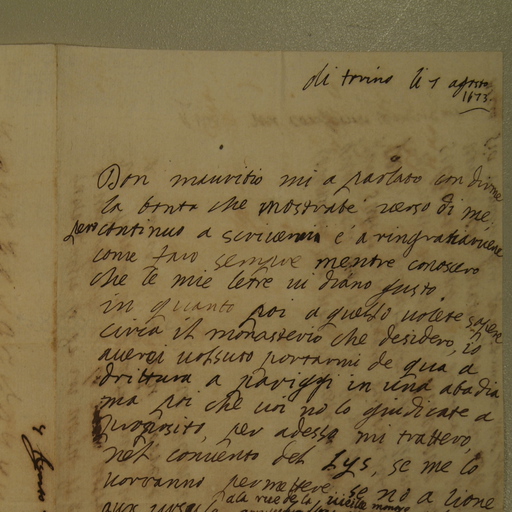 di torino li 7 agosto
1673
Don mauritio mi a parlato con dirme
la bonta che mostrate verso di me,
pero continuo a scrivervi e a ringratiarvene
come faro sempre mentre conoscero
che le mie letre vi diano gusto
in quanto poi a quello volete sapere
circa il monasterio che desidero, io
averei volsuto portarmi de qua a
drittura a pariggi in una abadia
ma poi che voi no lo giudicate a
proposito, per adesso mi trattero,
nel convento del Lys, se me lo
vorranno permettere, se no a lione
ala rue de la